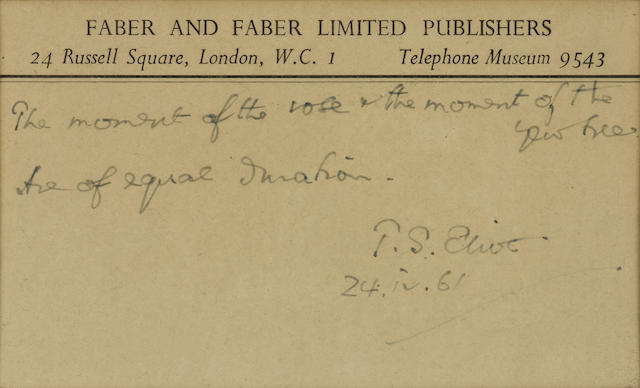 FABER AND FABER LIMITED PUBLISHERS
24 Russell Square, London, W.C. 1 Telephone Museum 9543
The moment of the rose & the moment of the
yew tree
Are of equal duration.
T. S. Eliot.
24. iv. 61